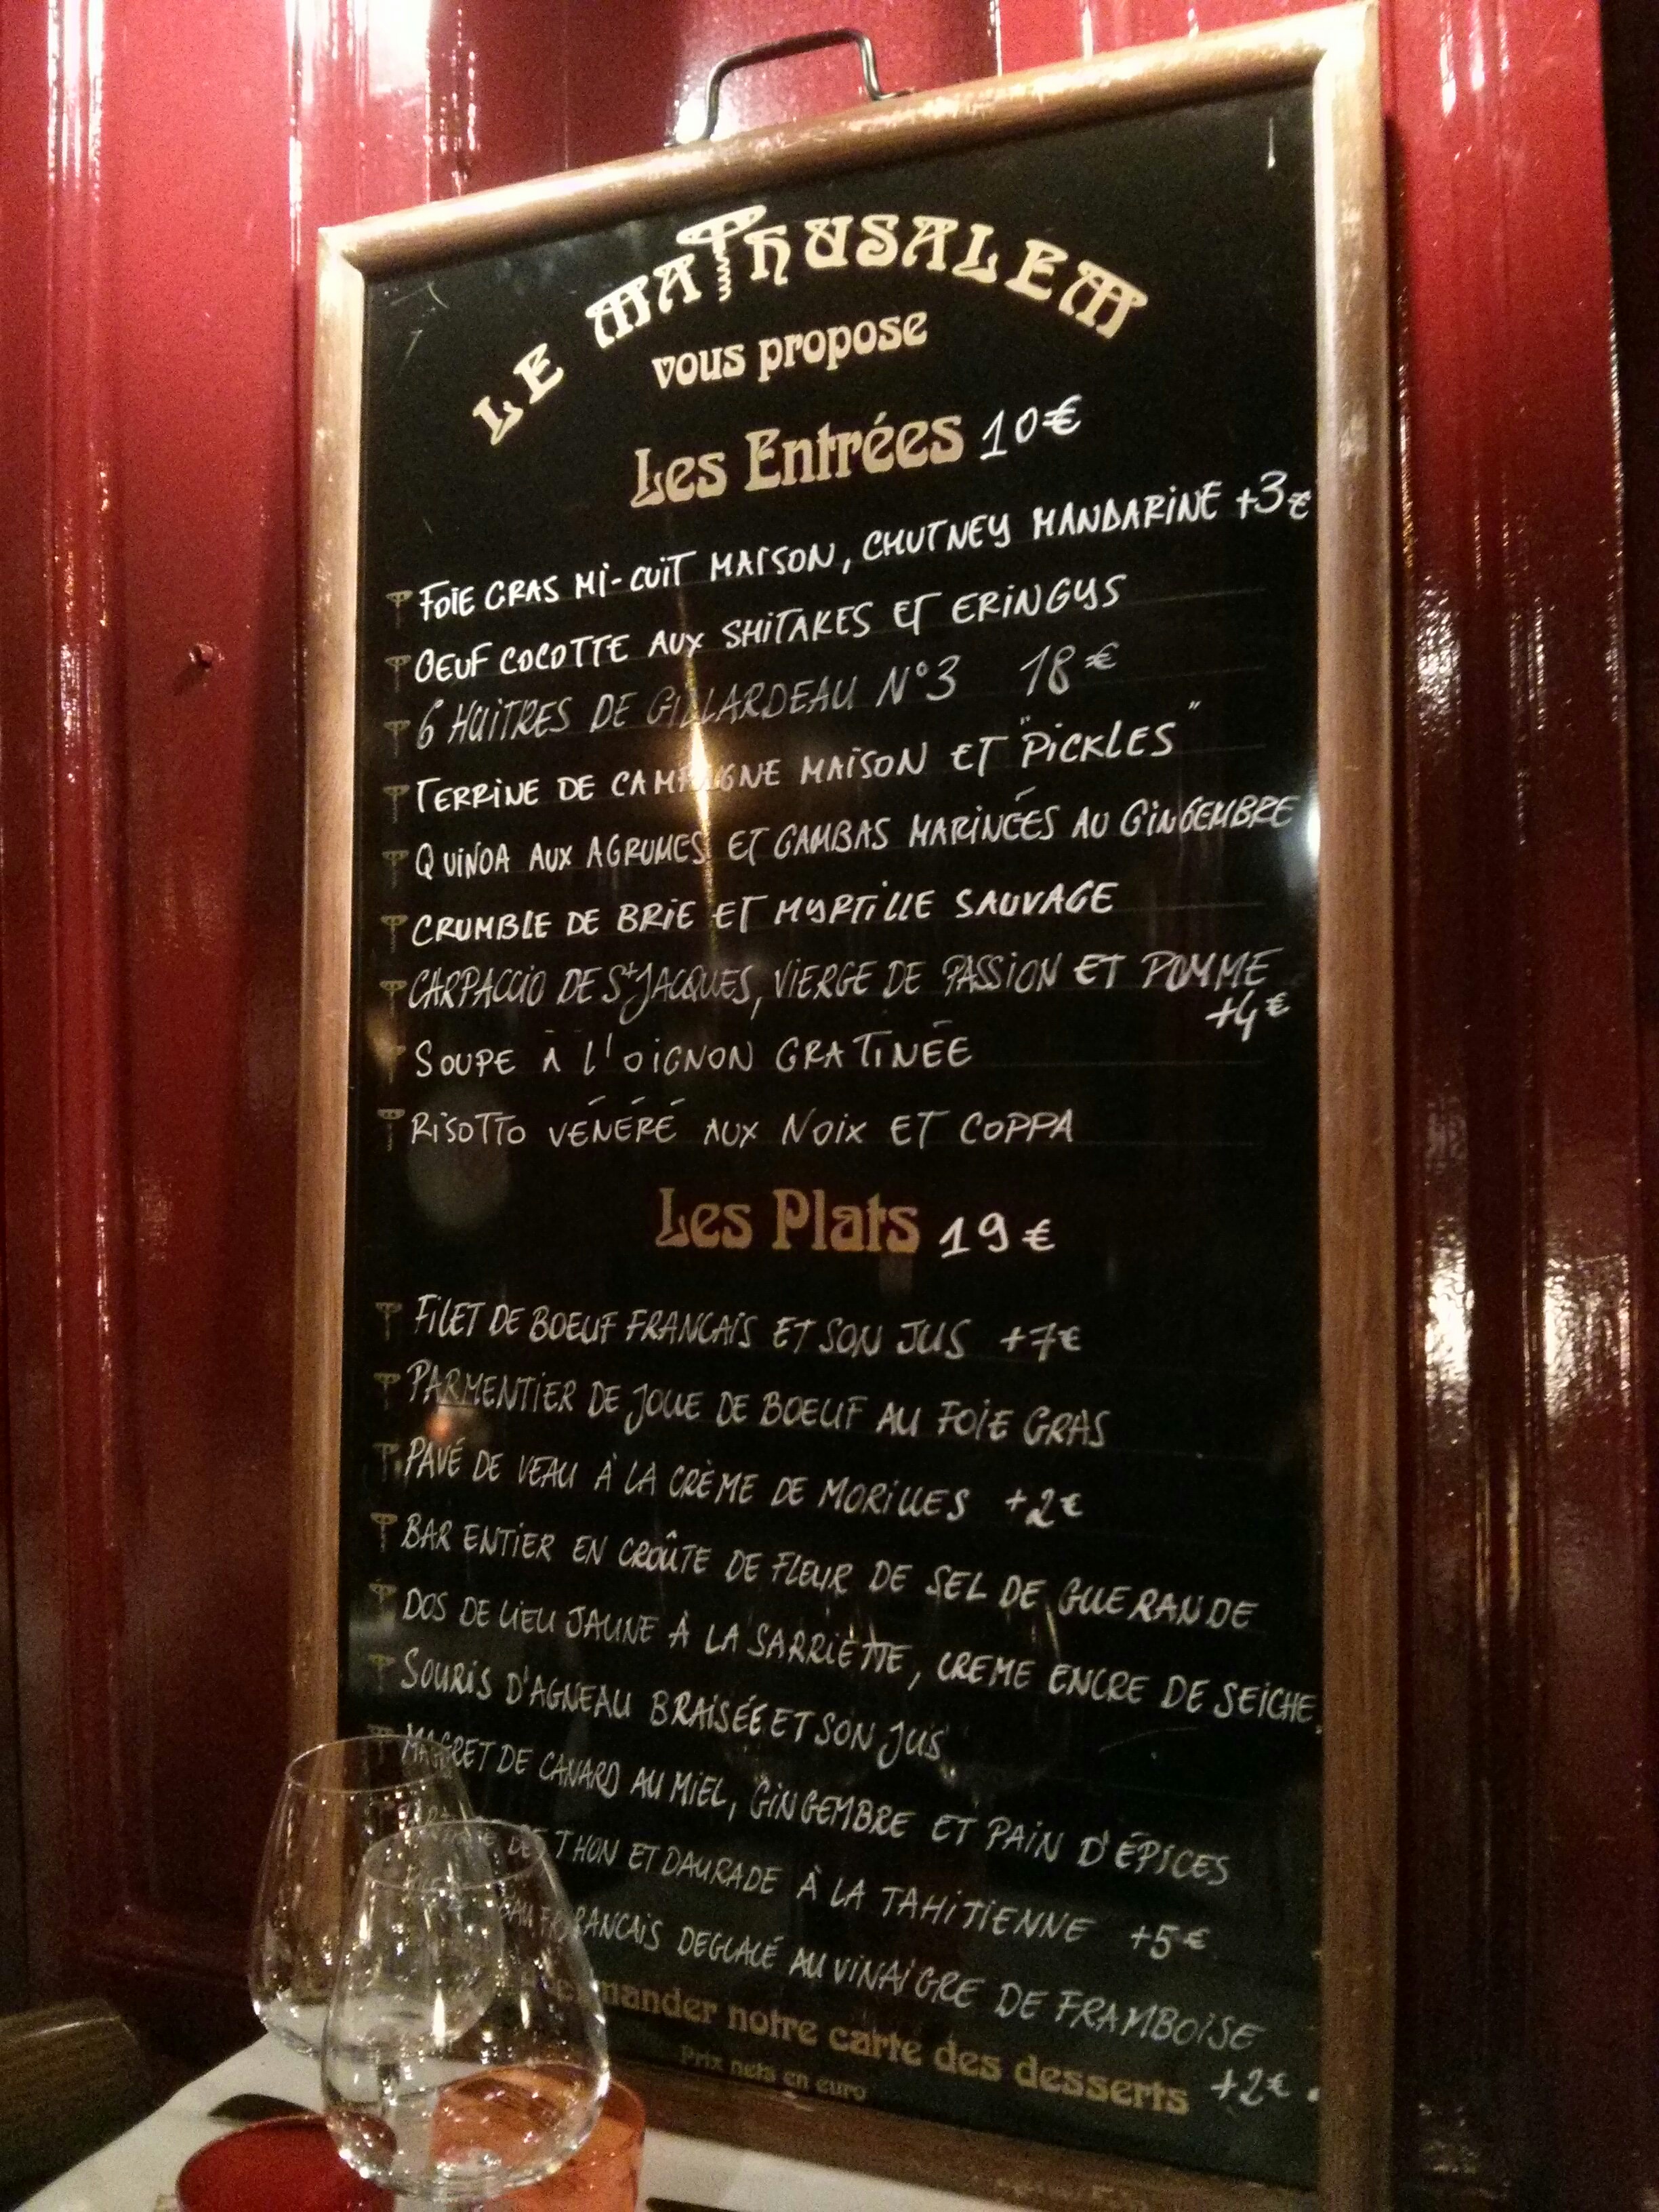 LE MATHUSALEM
vous propose
Les Entrées 10€
FOIE GRAS MI-CUIT MAISON, CHUTNEY MANDARINE +3€
OEUF COCOTTE AUX SHITAKES ET ERINGYS
6 HUITRES DE GILLARDEAU N°3 18€
TERRINE DE CAMPAGNE MAISON ET "PICKLES"
QUINOA AUX AGRUMES ET GAMBAS MARINÉES AU GINGEMBRE
CRUMBLE DE BRIE ET MYRTILLE SAUVAGE
CARPACCIO DE St JACQUES, VIERGE DE PASSION ET POMME
+4€
SOUPE À L'OIGNON GRATINÉE
RISOTTO VÉNÉRÉ AUX NOIX ET COPPA
Les Plats 19€
FILET DE BOEUF FRANCAIS ET SON JUS +7€
PARMENTIER DE JOUE DE BOEUF AU FOIE GRAS
PAVÉ DE VEAU À LA CRÈME DE MORILLES +2€
BAR ENTIER EN CROÛTE DE FLEUR DE SEL DE GUERANDE
DOS DE LIEU JAUNE À LA SARRIETTE, CREME ENCRE DE SEICHE.
SOURIS D'AGNEAU BRAISÉE ET SON JUS
MAGRET DE CANARD AU MIEL, GINGEMBRE ET PAIN D'ÉPICES
DE THON ET DAURADE À LA TAHITIENNE +5€
FRANCAIS DEGLACÉ AU VINAIGRE DE FRAMBOISE
demander notre carte des desserts +2€
Prix nets en euro